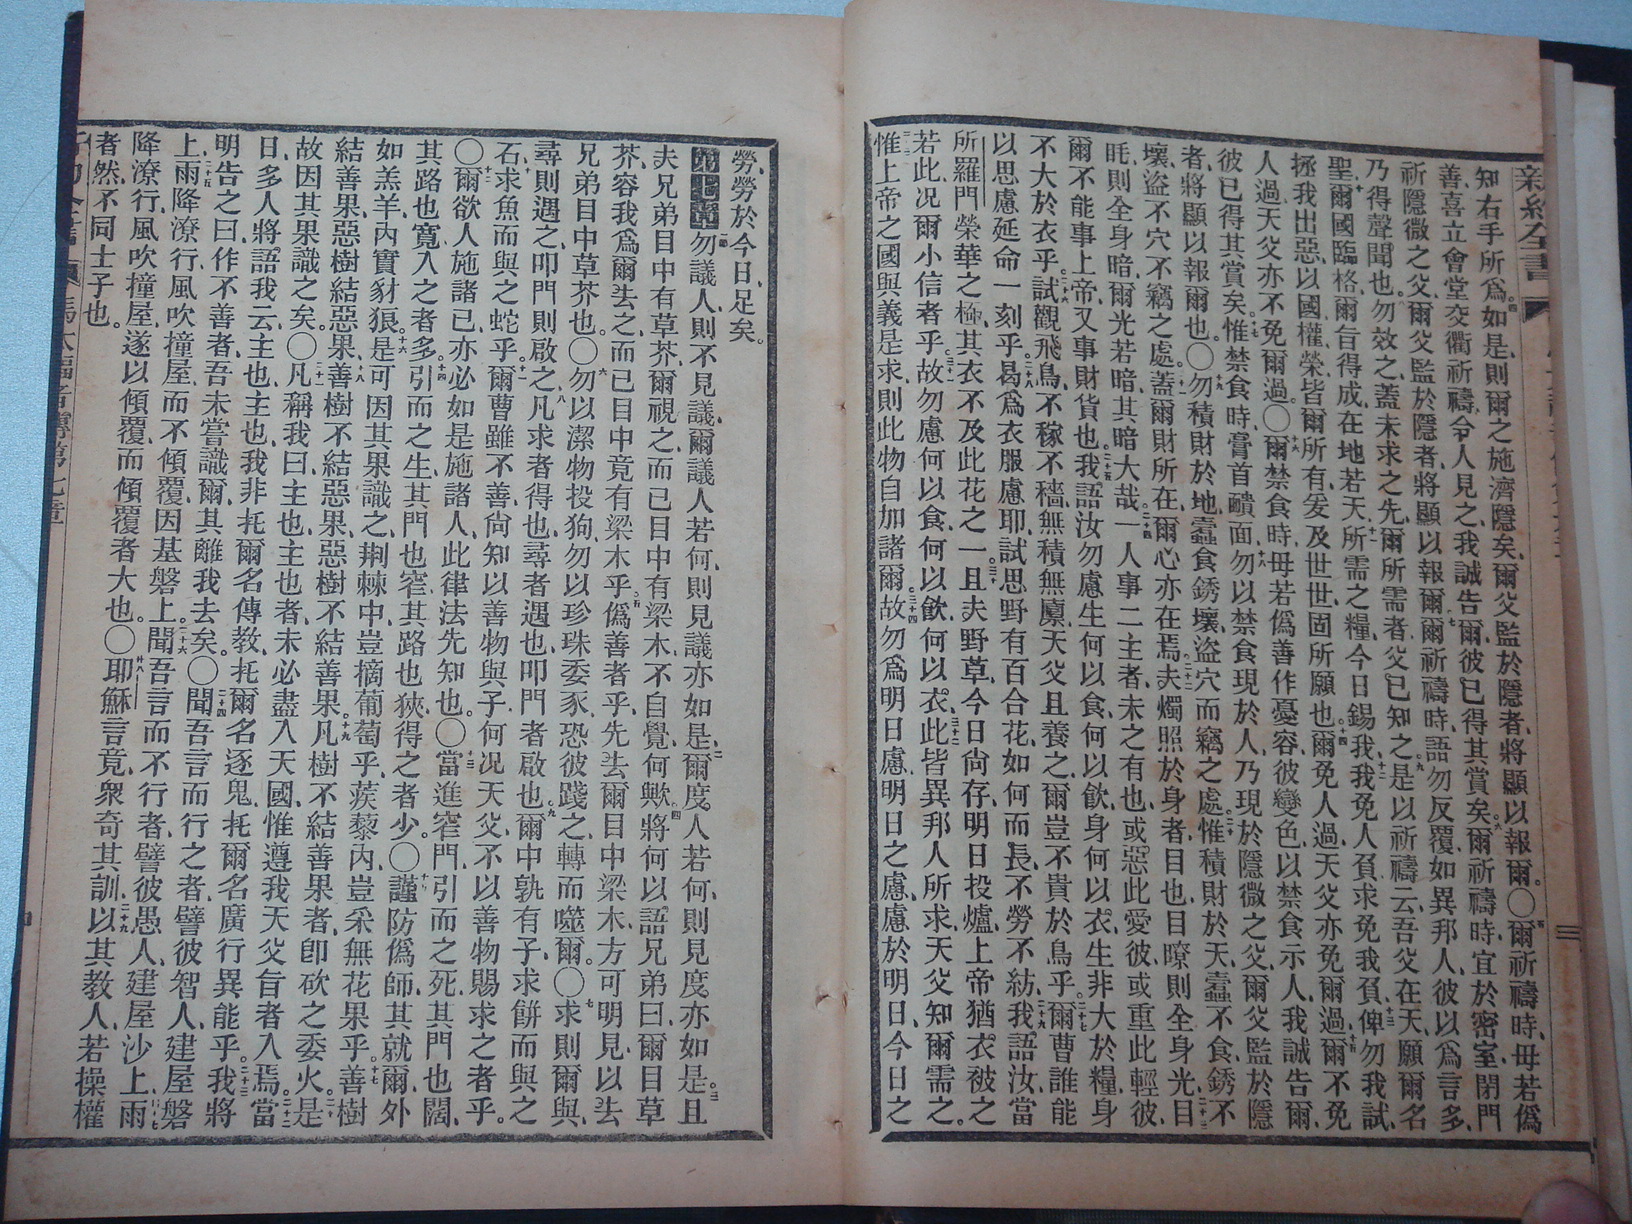 新約全書
知右手所爲、如是、則爾之施濟隱矣、爾父監於隱者、將顯以報爾。〇爾祈禱時、毋若僞
善、喜立會堂交衢祈禱、令人見之、我誠告爾、彼已得其賞矣、爾祈禱時、宜於密室、閉門
祈隱微之父、爾父監於隱者、將顯以報爾、爾祈禱時、語勿反覆如異邦人、彼以爲言多、
乃得聲聞也、勿效之、蓋未求之先、爾所需者、父已知之、是以祈禱云、吾父在天、願爾名
聖、爾國臨格、爾旨得成、在地若天、所需之糧、今日錫我、我免人負、求免我負、俾勿我試、
拯我出惡、以國權榮皆爾所有、爰及世世、固所願也、爾免人過、天父亦免爾過、爾不免
人過、天父亦不免爾過〇爾禁食時、毋若僞善作憂容、彼變色、以禁食示人、我誠告爾、
彼已得其賞矣、惟禁食時、膏首靧面、勿以禁食現於人、乃現於隱微之父、爾父監於隱
者、將顯以報爾也、〇勿積財於地、蠹食銹壞、盜穴而竊之處、惟積財於天、蠹不食、銹不
壞、盜不穴不竊之處、蓋爾財所在、爾心亦在焉、夫燭照於身者目也、目瞭則全身光、目
眊則全身暗、爾光若暗、其暗大哉、一人事二主者、未之有也、或惡此愛彼、或重此輕彼、
爾不能事上帝、又事財貨也、我語汝、勿慮生何以食、何以飲、身何以衣、生非大於糧、身
不大於衣乎、試觀飛鳥、不稼不穡、無積無廩、天父且養之、爾豈不貴於鳥乎、爾曹誰能
以思慮延命一刻乎、曷爲衣服慮耶、試思野有百合花、如何而長、不勞不紡、我語汝、當
所羅門榮華之極、其衣不及此花之一、且夫野草、今日尙存、明日投爐、上帝猶衣被之
若此、況爾小信者乎、故勿慮何以食、何以飲、何以衣、此皆異邦人所求、天父知爾需之。
惟上帝之國與義是求、則此物自加諸爾、故勿爲明日慮、明日之慮、慮於明日、今日之
勞、勞於今日、足矣。
第七章 勿議人、則不見議、爾議人若何、則見議亦如是、爾度人若何、則見度亦如是、且
夫兄弟目中有草芥、爾視之、而己目中有梁木、不自覺何歟、將何以語兄弟曰、爾目草
芥、容我爲爾去之、而己目中竟有梁木乎、僞善者乎、先去爾目中梁木、方可明見、以去
兄弟目中草芥也、〇勿以潔物投狗、勿以珍珠委豕、恐彼踐之、轉而噬爾。〇求則爾與、
尋則遇之、叩門則啟之、凡求者得也、尋者遇也、叩門者啟也、爾中孰有子求餅而與之
石、求魚而與之蛇乎、爾曹雖不善、尙知以善物與子、何況天父、不以善物賜求之者乎。
〇爾欲人施諸己、亦必如是施諸人、此律法先知也。〇當進窄門、引而之死、其門也闊、
其路也寬、入之者多、引而之生、其門也窄、其路也狹、得之者少。〇謹防僞師、其就爾、外
如羔羊、內實豺狼、是可因其果識之、荆棘中豈摘葡萄乎、蒺藜內豈采無花果乎、善樹
結善果、惡樹結惡果、善樹不結惡果、惡樹不結善果。凡樹不結善果者、卽砍之委火。是
故因其果識之矣。〇凡稱我曰、主也、主也者、未必盡入天國、惟遵我天父旨者入焉、當
日多人將語我云、主也、主也、我非托爾名傳教、托爾名逐鬼、托爾名廣行異能乎、我將
明告之曰、作不善者、吾未嘗識爾、其離我去矣。〇聞吾言而行之者、譬彼智人、建屋磐
上、雨降潦行風吹、撞屋而不傾覆、因基磐上。聞吾言而不行者、譬彼愚人、建屋沙上、雨
降潦行、風吹撞屋、遂以傾覆、而傾覆者大也。〇耶穌言竟、衆奇其訓、以其教人、若操權
者然、不同士子也。
馬太福音傳第七章